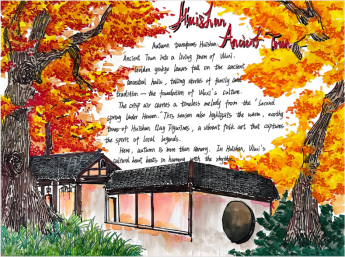 Huishan
Ancient Town
Autumn transforms Huishan
Ancient Town into a living poem of Wuxi.
Golden ginkgo leaves fall on the ancient
ancestral halls, telling stories of family and
tradition — the foundation of Wuxi's culture.
The crisp air carries a timeless melody from the "Second
Spring Under Heaven." This season also highlights the warm, earthy
tones of Huishan Clay Figurines, a vibrant folk art that captures
the spirit of local legends.
Here, autumn is more than scenery. In Huishan, Wuxi's
cultural heart beats in harmony with the rhythm